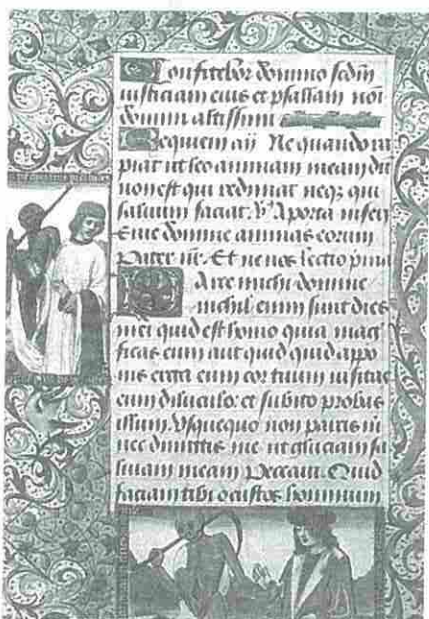 Confitebor domino scdm
iusticiam eius et psallam noi
domini altissimi
Requiem an Ne quando ra
piat ut leo animam meam du
non est qui redimat neqz qui
saluum faciat. V A porta inferi
Erue domine animas eorum
Pater nr. Et ne nos lectio pma
Parce michi domine
nichil enim sunt dies
mei quid est homo quia mag
ficas eum aut quid appo
nis erga eum cor tuum uisitas
eum diluculo et subito probas
illum. Vsquequo non parcis m
nec dimittis me ut glutiam sa
liuam meam Peccaui. Quid
faciam tibi o custos hominum